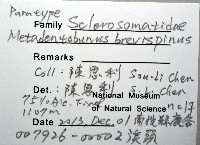 Paratype
Family Sclerosomatidae
Metadentobunus brevispinus
Remarks
Coll. 陳恩利 Sau-Li Chen
Det. : 陳恩利 S. Li Chen
National Museum
1107m of Natural Science n=17
Date 2013, Dec, 01 南投縣鹿谷
007926-00002 溪頭